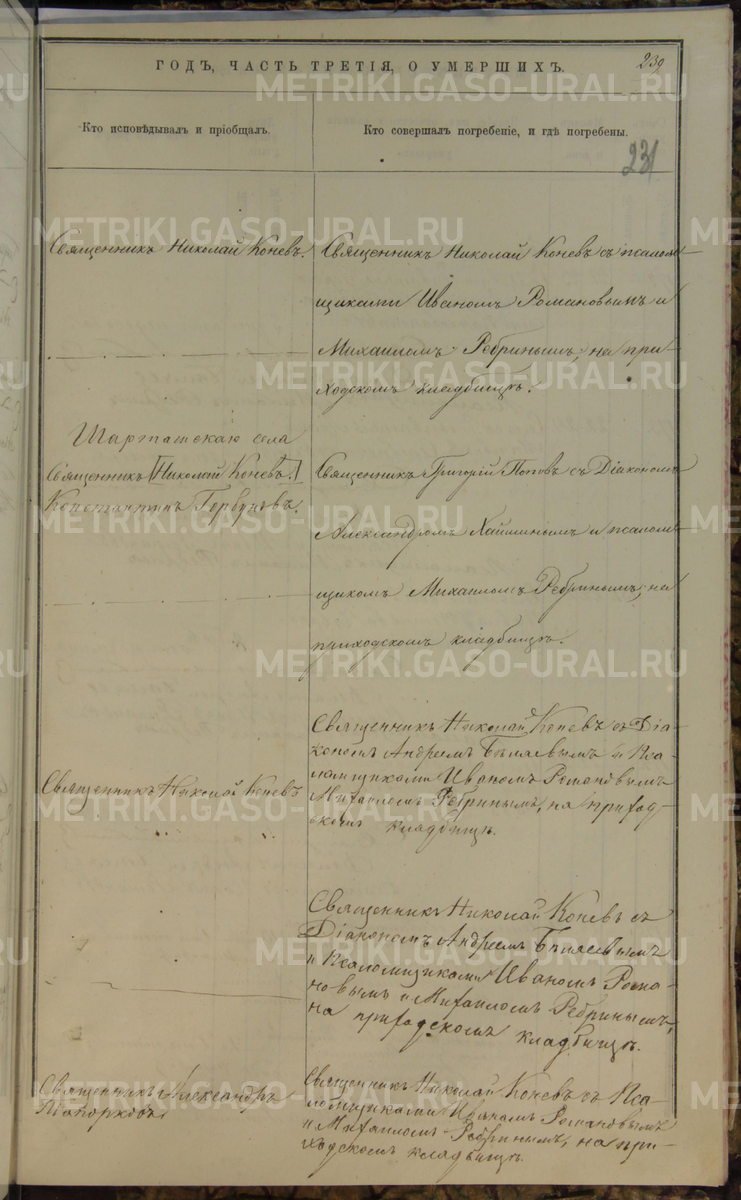 239
ГОДЪ, ЧАСТЬ ТРЕТІЯ, О УМЕРШИХЪ.
Кто исповѣдывалъ и пріобщалъ.
Кто совершалъ погребеніе, и гдѣ погребены.
231
Священникъ Николай Коневъ.
Священникъ Николай Коневъ съ псалом-
щиками Иваномъ Романовымъ и
Михаиломъ Ребринымъ, на при-
ходскомъ кладбищѣ.
Шарташскаго села
Священникъ [Николай Коневъ.]
Константинъ Горбуновъ.
Священникъ Григорій Поповъ съ Діакономъ
Александромъ и псалом-
щикомъ Михаиломъ Ребринымъ, на
приходскомъ кладбищѣ.
Священникъ Николай Коневъ
Священникъ Николай Коневъ съ Діа-
кономъ Андреемъ Бѣляевымъ и Пса-
ломщиками Иваномъ Романовымъ
Михаиломъ Ребринымъ, на приход-
скомъ кладбищѣ.
Священникъ Николай Коневъ съ
Діакономъ Андреемъ Бѣляевымъ
и Псаломщиками Иваномъ Рома-
новымъ и Михаиломъ Ребринымъ,
на приходскомъ кладбищѣ.
Священникъ Александръ
Священникъ Николай Коневъ съ Пса-
ломщиками Иваномъ Романовымъ
и Михаиломъ Ребринымъ, на при-
ходскомъ кладбищѣ.
METRIKI.GASO-URAL.RU